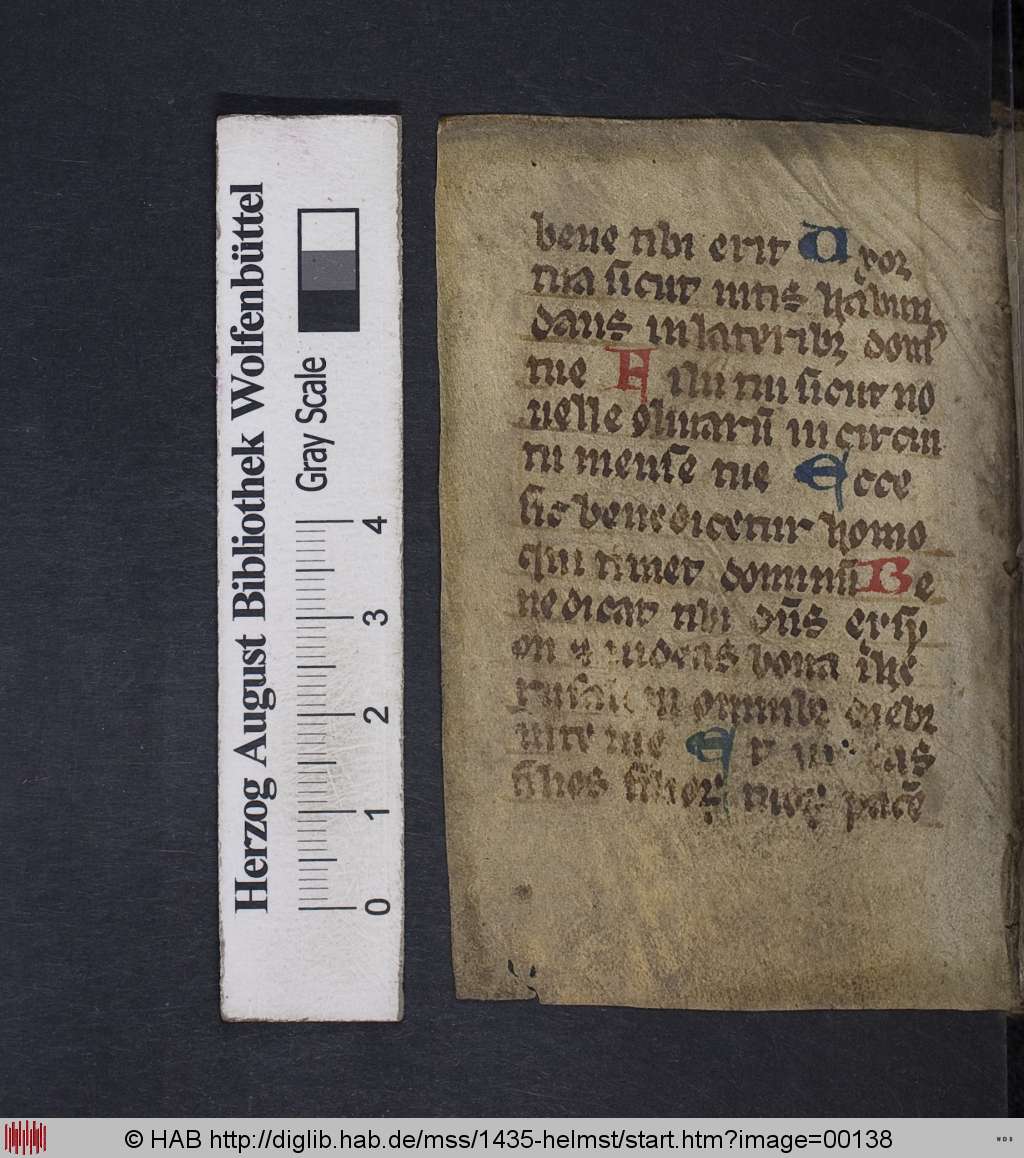 Herzog August Bibliothek Wolfenbüttel
Gray Scale
0 1 2 3 4
bene tibi erit Uxor
tua sicut uitis habun
dans in lateribꝫ domꝰ
tue Filii tui sicut no
uelle oliuarū in circui
tu mense tue Ecce
sic benedicetur homo
qui timet dominū Be
nedicat tibi dn̄s ex sy
on ⁊ uideas bona ihe
rusalem omnibꝫ diebꝫ
uite tue Et uideas
filios filioꝝ tuoꝝ pacē
© HAB http://diglib.hab.de/mss/1435-helmst/start.htm?image=00138